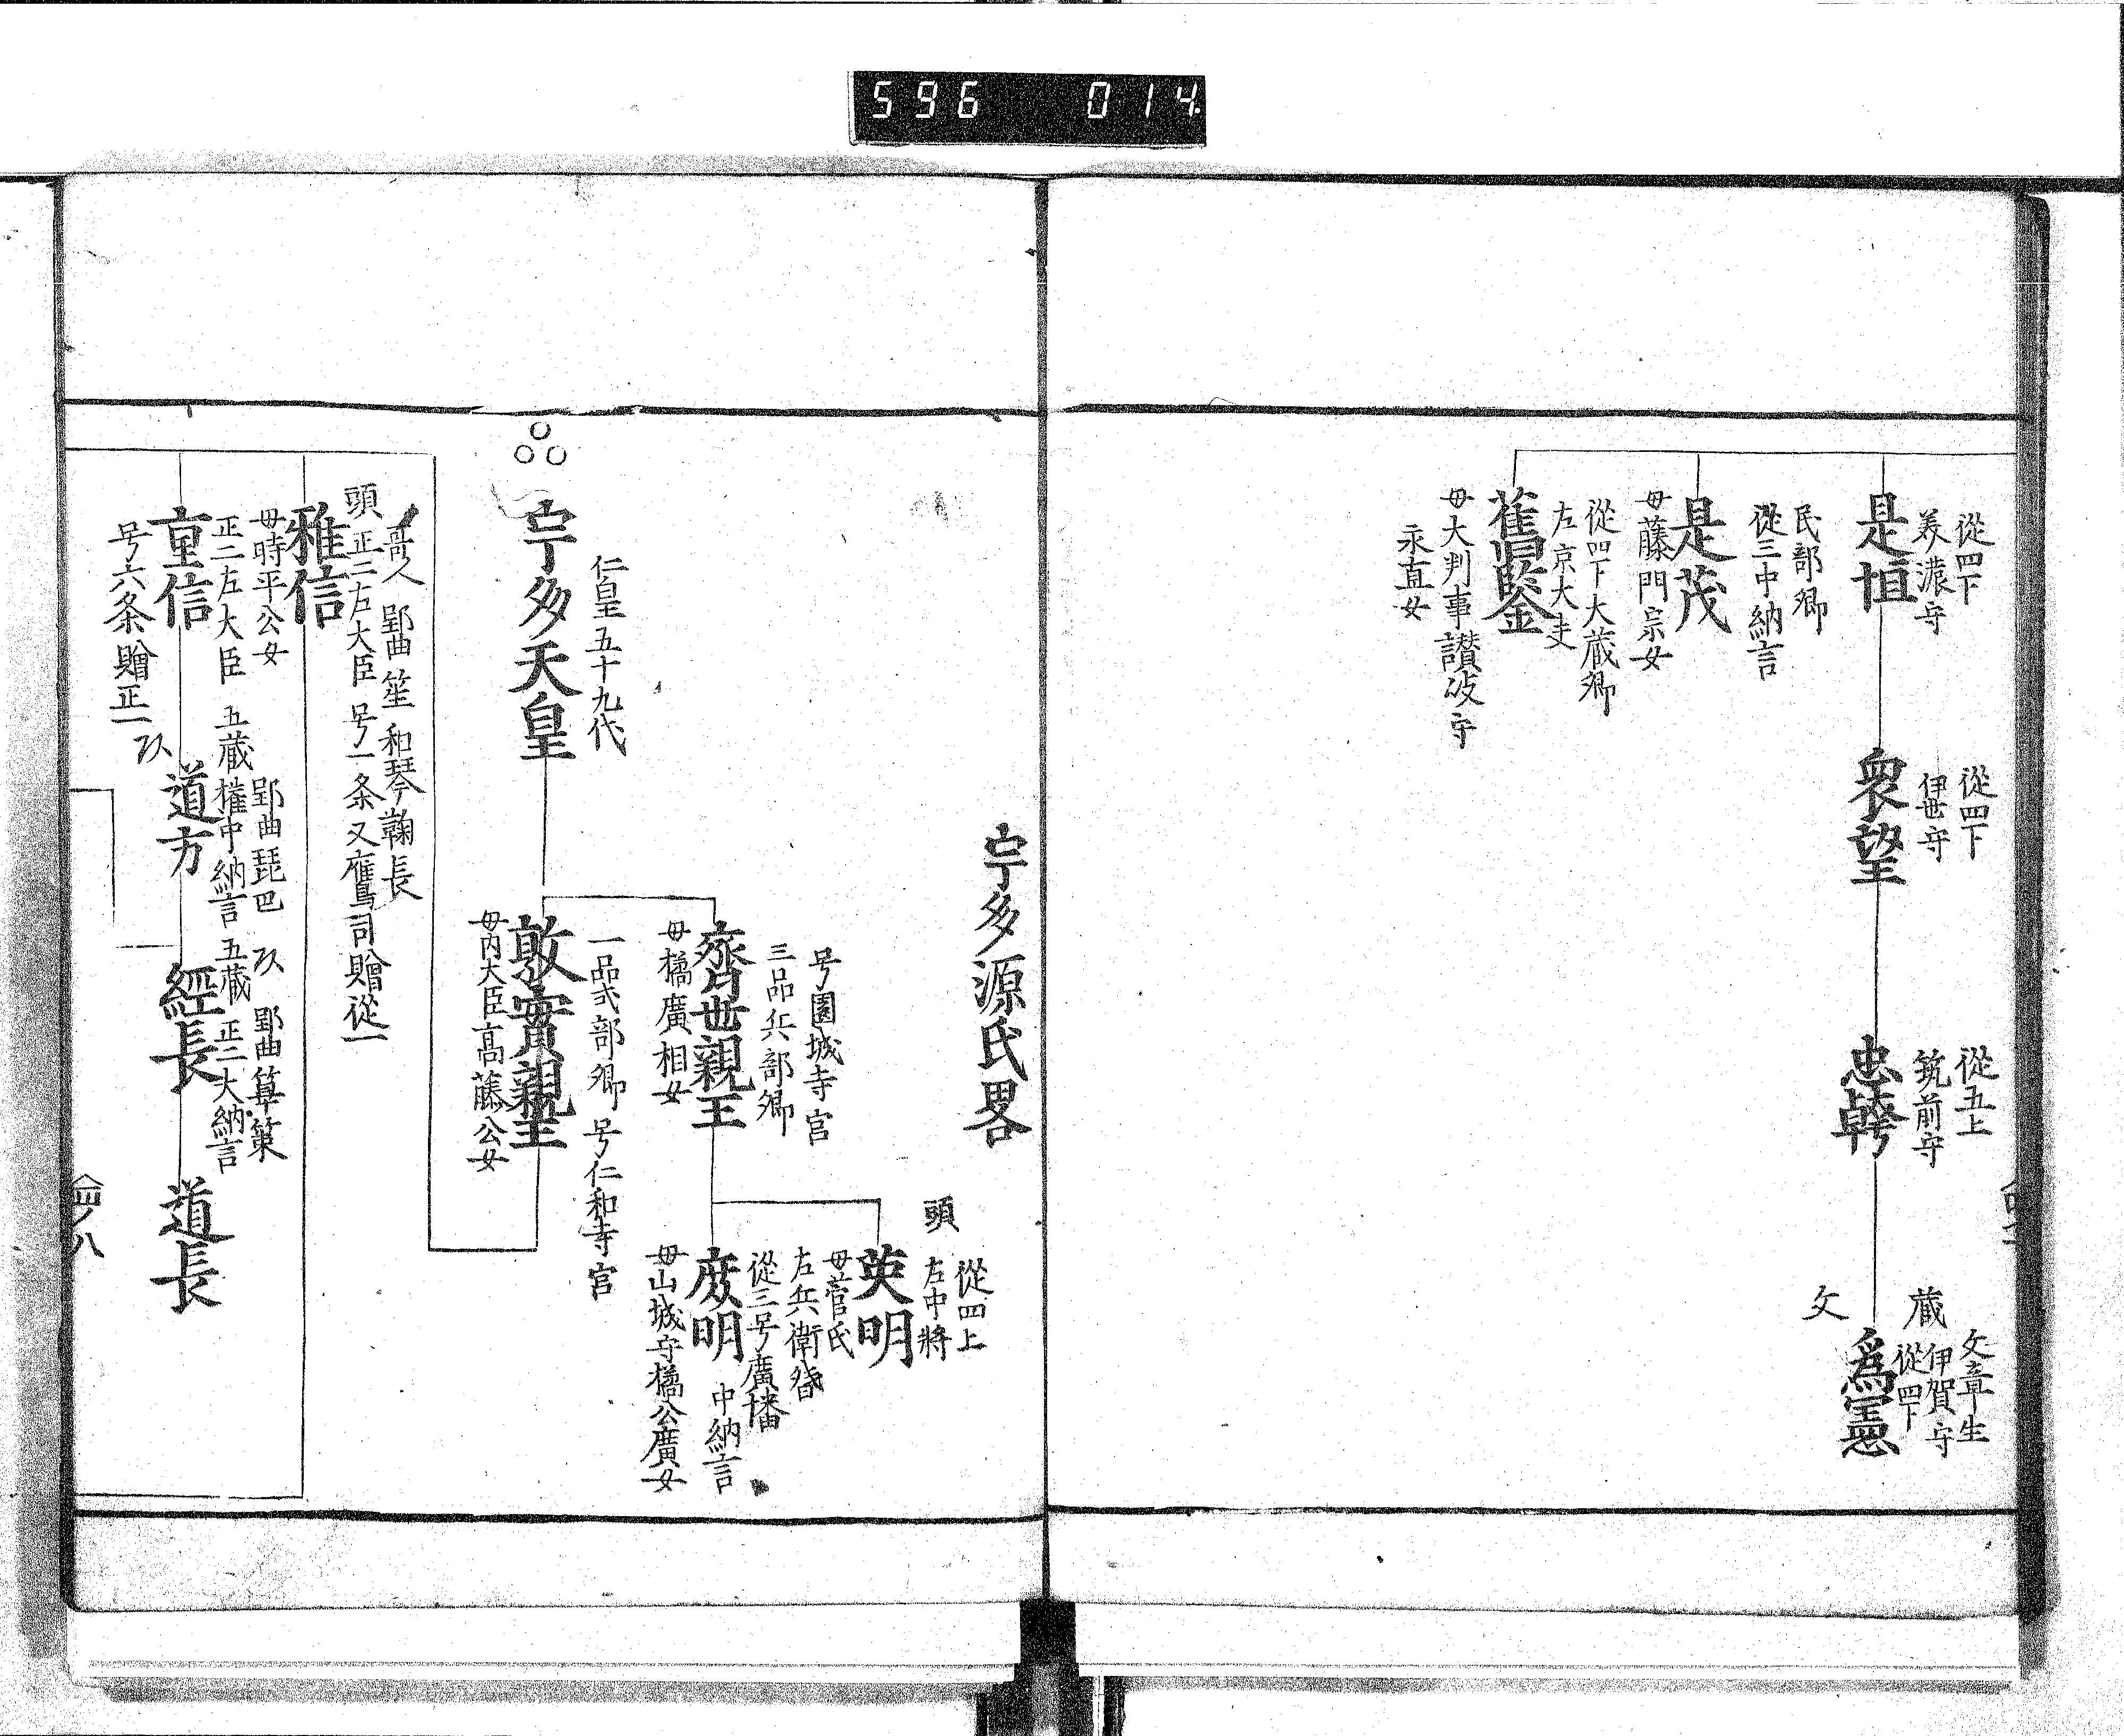 596 014
從四下
美濃守
是恒
從四下
伊世守
衆望
從五上
筑前守
忠幹
文章生
伊賀守
從四下
蔵
文
爲憲
民部卿
從三中納言
是茂
母藤門宗女
從四下大蔵卿
左京大夫
舊鑒
母大判事讃岐守
永直女
宇多源氏畧
仁皇五十九代
宇多天皇
号園城寺宮
三品兵部卿
齊世親王
母橘廣相女
頭
從四上
左中將
英明
母菅氏
左兵衛督
從三号廣幡
中納言
庶明
母山城守橘公廣女
一品式部卿 号仁和寺宮
敦實親王
母内大臣高藤公女
哥人 郢曲 笙 和琴 鞠長
頭
正二左大臣 号一条又鷹司贈從一
雅信
母時平公女
正二左大臣
重信
号六条贈正一
郢曲琵巴
五蔵 権中納言
道方
郢曲 篳篥
五蔵 正二大納言
經長
道長
四ノ八